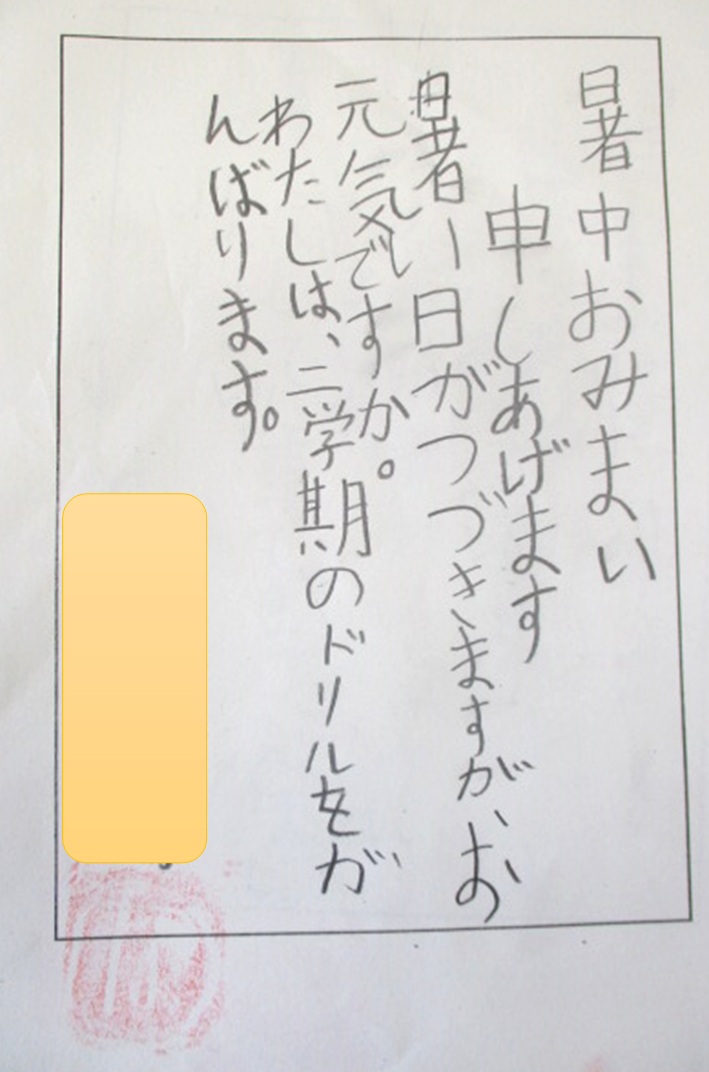 暑中おみまい
申しあげます
暑い日がつづきますが、お
元気ですか。
わたしは、二学期のドリルをが
んばります。